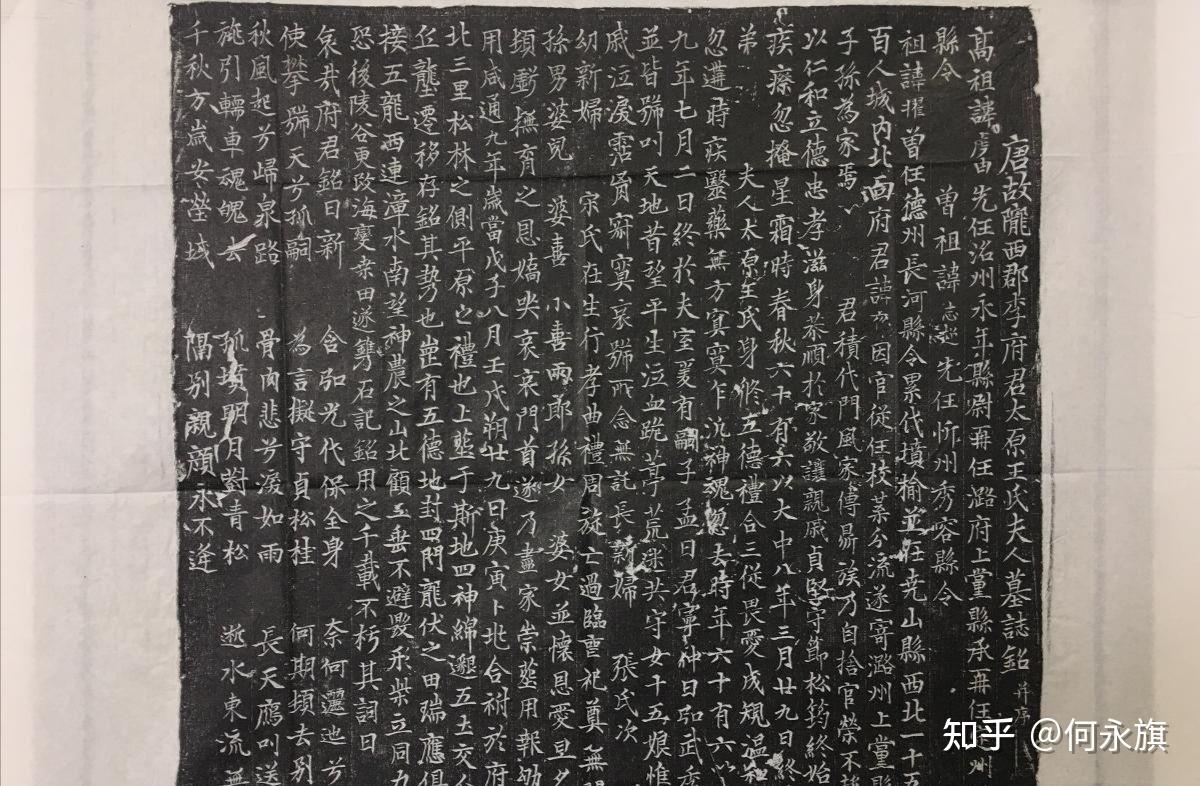 唐故隴西郡李府君太原王氏夫人墓誌銘 并序
高祖諱虔由先任洺州永年縣尉再任潞府上黨縣承再任 州
縣令 曾祖諱志 先任忻州秀容縣令
祖諱擢曾任德州長河縣令累代墳榆並在堯山縣西北一十五
百人城内北面府君諱 因官從任枝葉分流遂寄潞州上黨縣
子孫為家焉 君積代門風家傳鼎族乃自捨官榮不
以仁和立德忠孝滋身恭順於家敬讓親戚貞堅守節松筠終始
疾瘵忽掩星霜時春秋六十有六以大中八年三月廿九日終
弟 夫人太原王氏身脩五德禮合三從畏愛成規温和
忽遘時疾毉藥無方寞寞乍沉神魂忽去時年六十有六以
九年七月二日終於夫室爰有嗣子孟曰君寧仲曰弘武季
並皆號叫天地昔望平生泣血跪 荒迷共守女十五娘惟
戚泣淚霑 寂寞哀號所念無託長新婦 張氏次
幼新婦 宗氏在生行孝曲禮周旋亡過臨靈祀奠無
孫男婆兒 婆喜 小喜兩郎孫女 婆女並懷恩愛旦夕
頃虧撫育之恩嬌哭哀哀門首遂乃盡家崇塟用報劬
用咸通九年歲當戊子八月壬戌朔廿九日庚寅卜兆合祔於府
北三里松林之側平原之禮也上塟于斯地四神綿邈五土交
丘壟遷移存銘其勢也崗有五德地封四門龍伏之田瑞應俱
接五龍西連漳水南望神農之山北顧 不避毀 柴立同
恐後陵谷更改海變桒田遂鐫石記銘用之千載不朽其詞曰
哀哉府君銘曰新 含弘光代保全身 奈何邐迆兮
使攀號天兮孤嗣 為言擬守貞松桂 何期頃去别
秋風起兮歸泉路 骨肉悲兮淚如雨 長天鴈叫送
旐引轜車魂魄去 孤墳明月對青松 逝水東流無
千秋万歲安塋域 隔别親顔永不逢
知乎 @何永旗